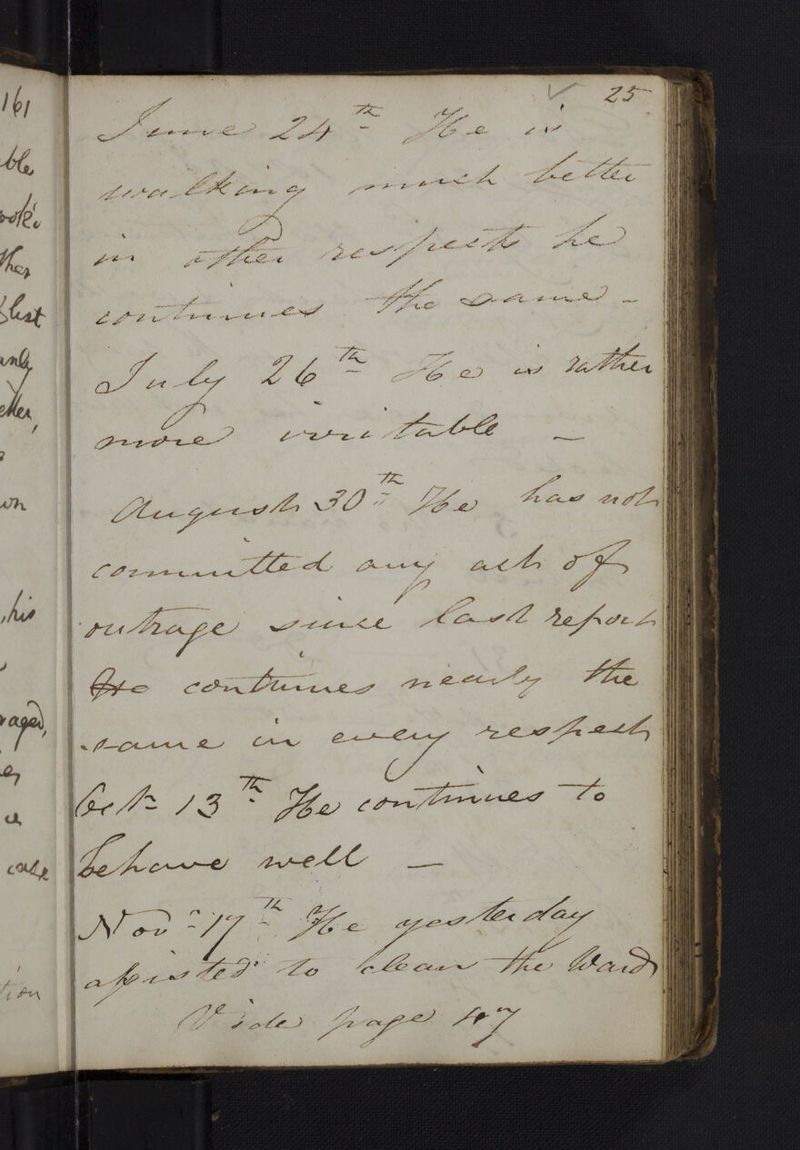 161
ble
ther
list
his
raged,
case
tion
25
June 24th He is
walking much better
in other respects he
continues the same -
July 26th He is rather
more irritable -
August 30th He has not
committed any act of
outrage since last report
He continues nearly the
same in every respect
Oct 13th He continues to
behave well -
Novr 17th He yesterday
assisted to clean the Ward
Vide page 47